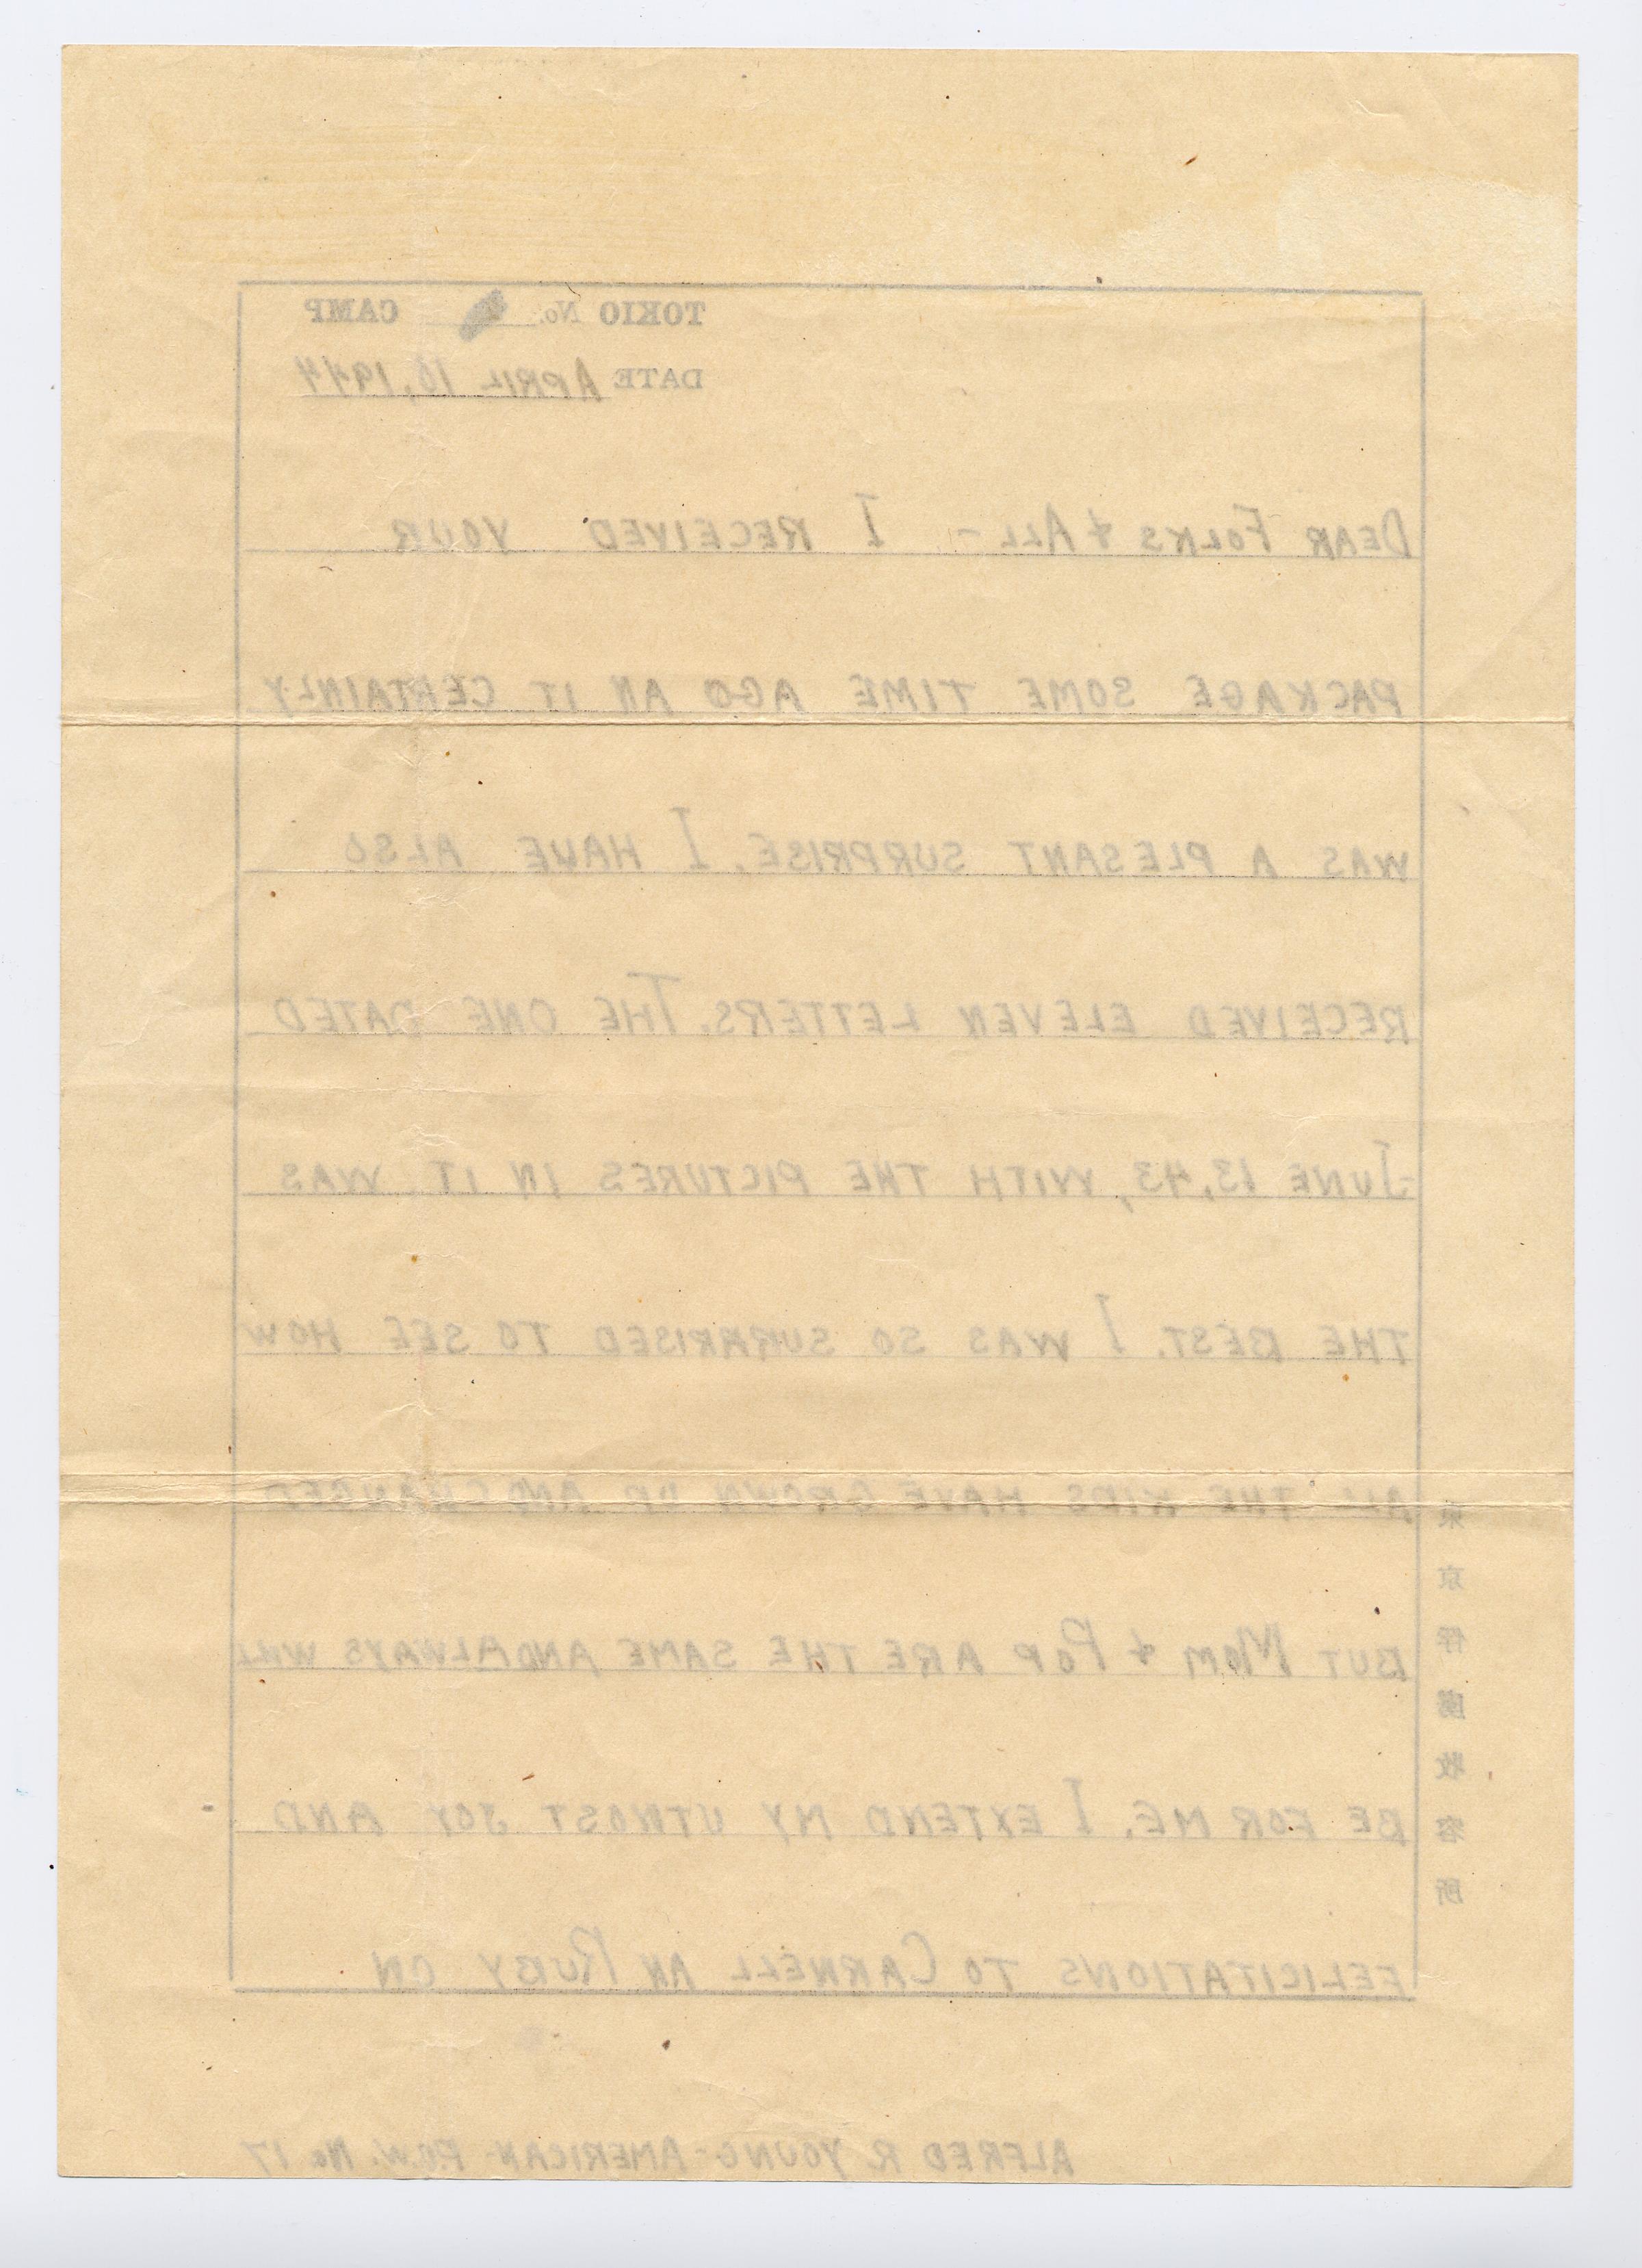 TOKIO No. CAMP
DATE APRIL 18, 1944
DEAR FOLKS & ALL - I RECEIVED YOUR
PACKAGE SOME TIME AGO AN IT CERTAINLY
WAS A PLESANT SURPRISE. I HAVE ALSO
RECEIVED ELEVEN LETTERS. THE ONE DATED
JUNE 13, 43, WITH THE PICTURES IN IT WAS
THE BEST. I WAS SO SURPRISED TO SEE HOW
ALL THE KIDS HAVE GROWN UP AND CHANGED
BUT MOM & POP ARE THE SAME AND ALWAYS WILL
BE FOR ME. I EXTEND MY UTMOST JOY AND
FELICITATIONS TO CARNELL AN RUBY ON
ALFRED R YOUNG - AMERICAN - P.O.W. No 17
東京俘虜收容所